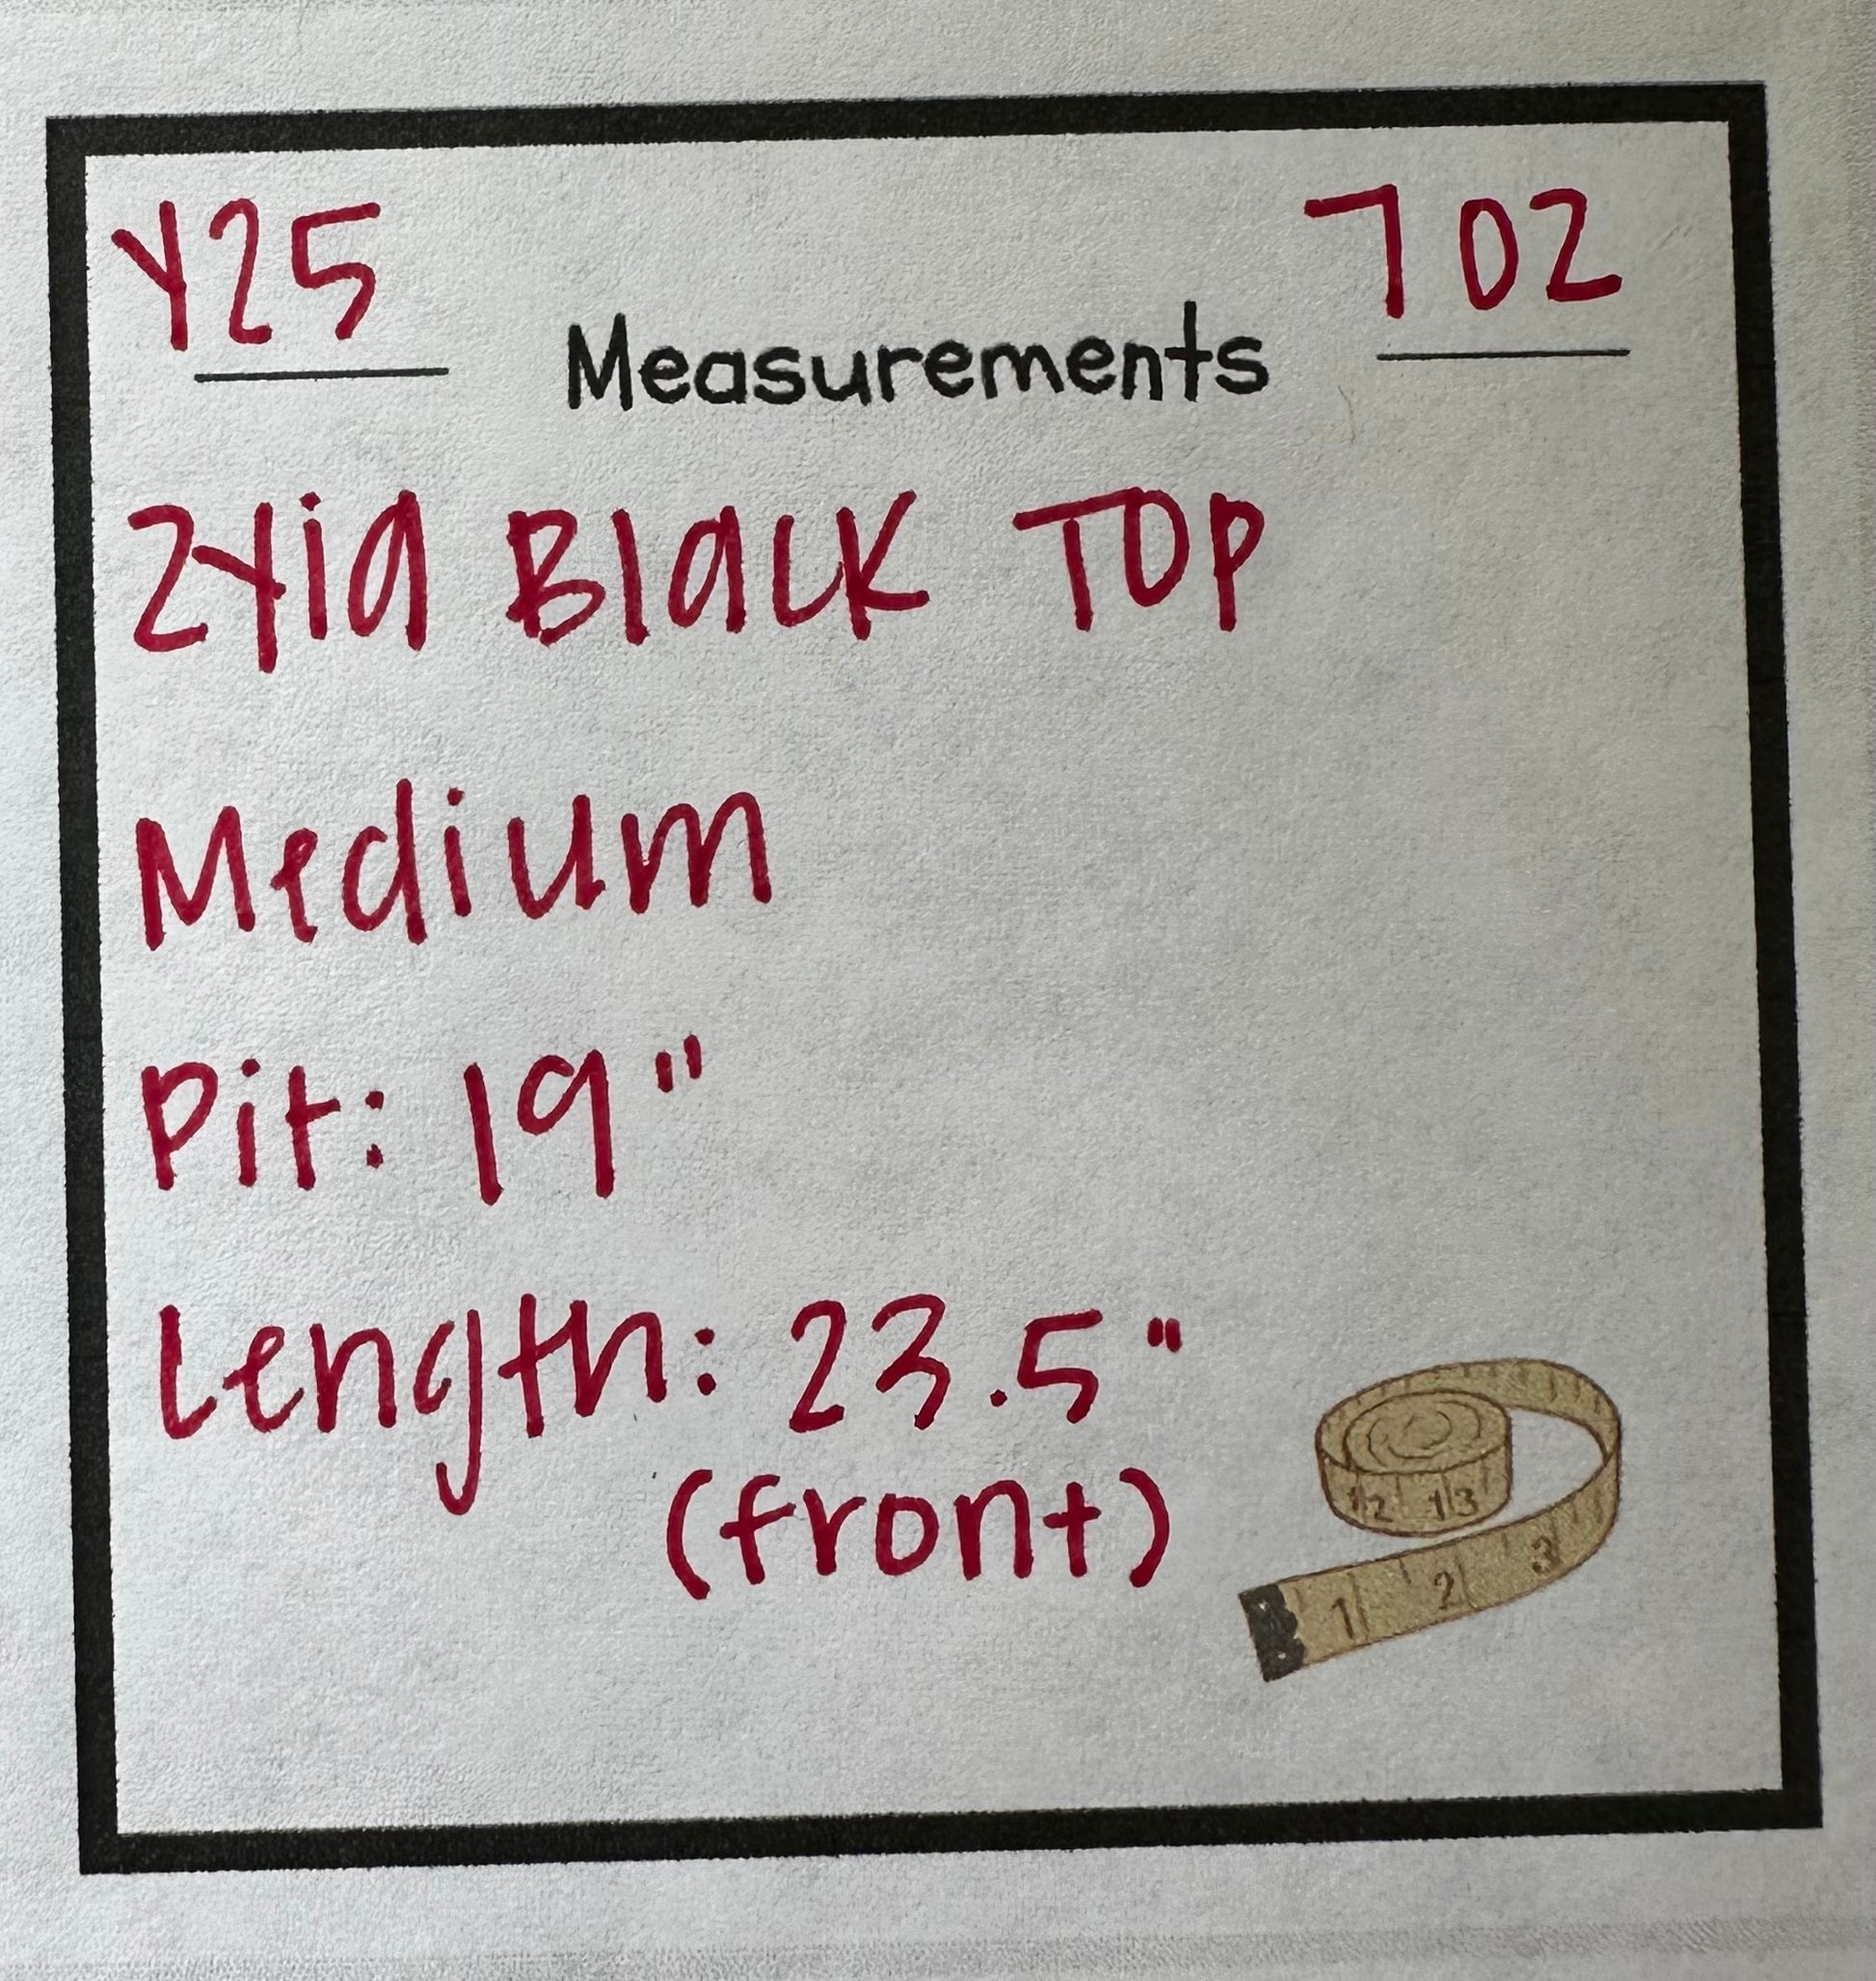 Y25 702
Measurements
Zyia Black Top
Medium
Pit: 19"
Length: 23.5"
(front)
12 13
1 2 3